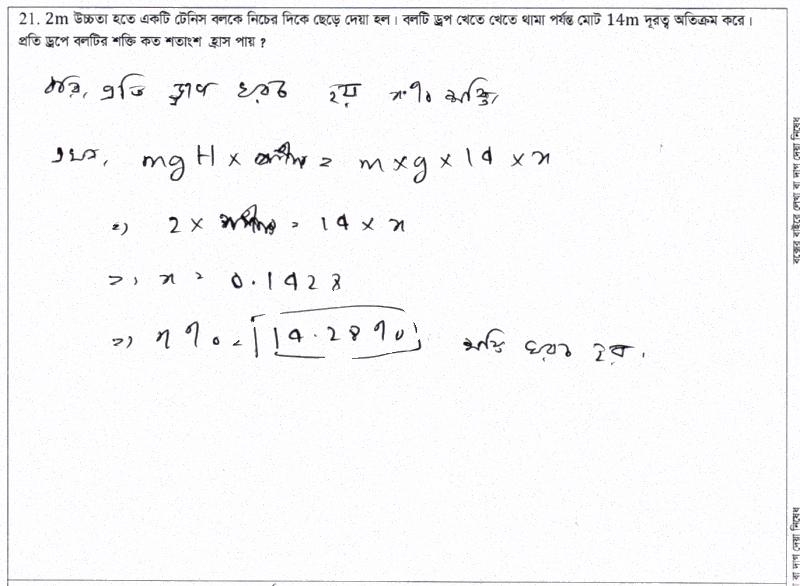 21. 2m উচ্চতা হতে একটি টেনিস বলকে নিচের দিকে ছেড়ে দেয়া হল। বলটি ড্রপ খেতে খেতে থামা পর্যন্ত মোট 14m দূরত্ব অতিক্রম করে।
প্রতি ড্রপে বলটির শক্তি কত শতাংশ হ্রাস পায় ?
ধরি, প্রতি ড্রপে খরচ হয় x% শক্তি,
এখন, mgH × = m×g×14×x
=> 2 × = 14 × x
=> x = 0.1428
=> x% = 14.28% শক্তি খরচ হয়.